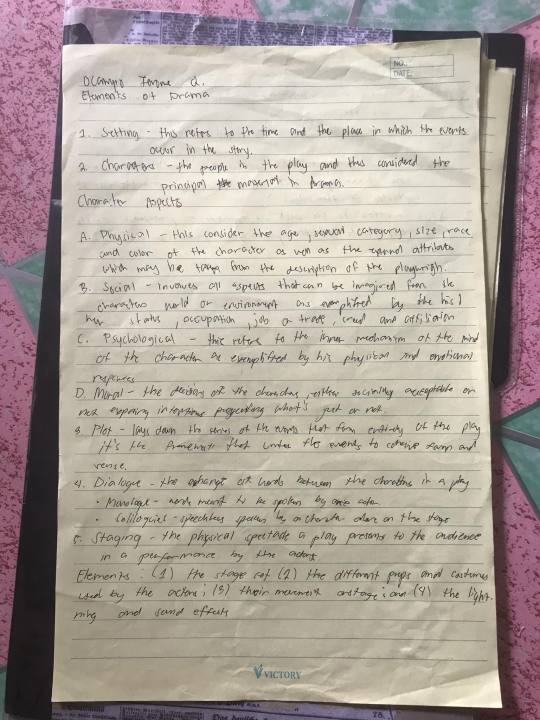 NO.
DATE
Ocampo Jerome Q.
Elements of Drama
1. Setting - this refers to the time and the place in which the events
occur in the story.
2. Characters - the people in the play and this considered the
principal material in Drama.
Character Aspects
A. Physical - this consider the age, sexual category, size, race
and color of the character as well as the attributes
which may be from the description of the playwrigh.
B. Social - involves all aspects that can be imagined from the
characters world or environment as exemplified by the his/
her status, occupation, job or trade, creed and affiliation
C. Psychological - this refers to the inner mechanism of the mind
of the character as exemplified by his physical and emotional
responses
D. Moral - the decisions of the characters, either socially acceptable or
not exposing intentions what's just or not.
3. Plot - lays down the series of the events that form entirety of the play
it's the framework that the events to cohesive form and
sense.
4. Dialogue - the exchange of words between the characters in a play
• Monologue - words meant to be spoken by one actor
• Soliloquies - spoken by a character alone on the stage
5. Staging - the physical spectacle a play presents to the audience
in a performance by the actors
Elements: (1) the stage set (2) the different props and costumes
used by the actors; (3) their movement onstage; and (4) the light-
ning and sound effects
VICTORY